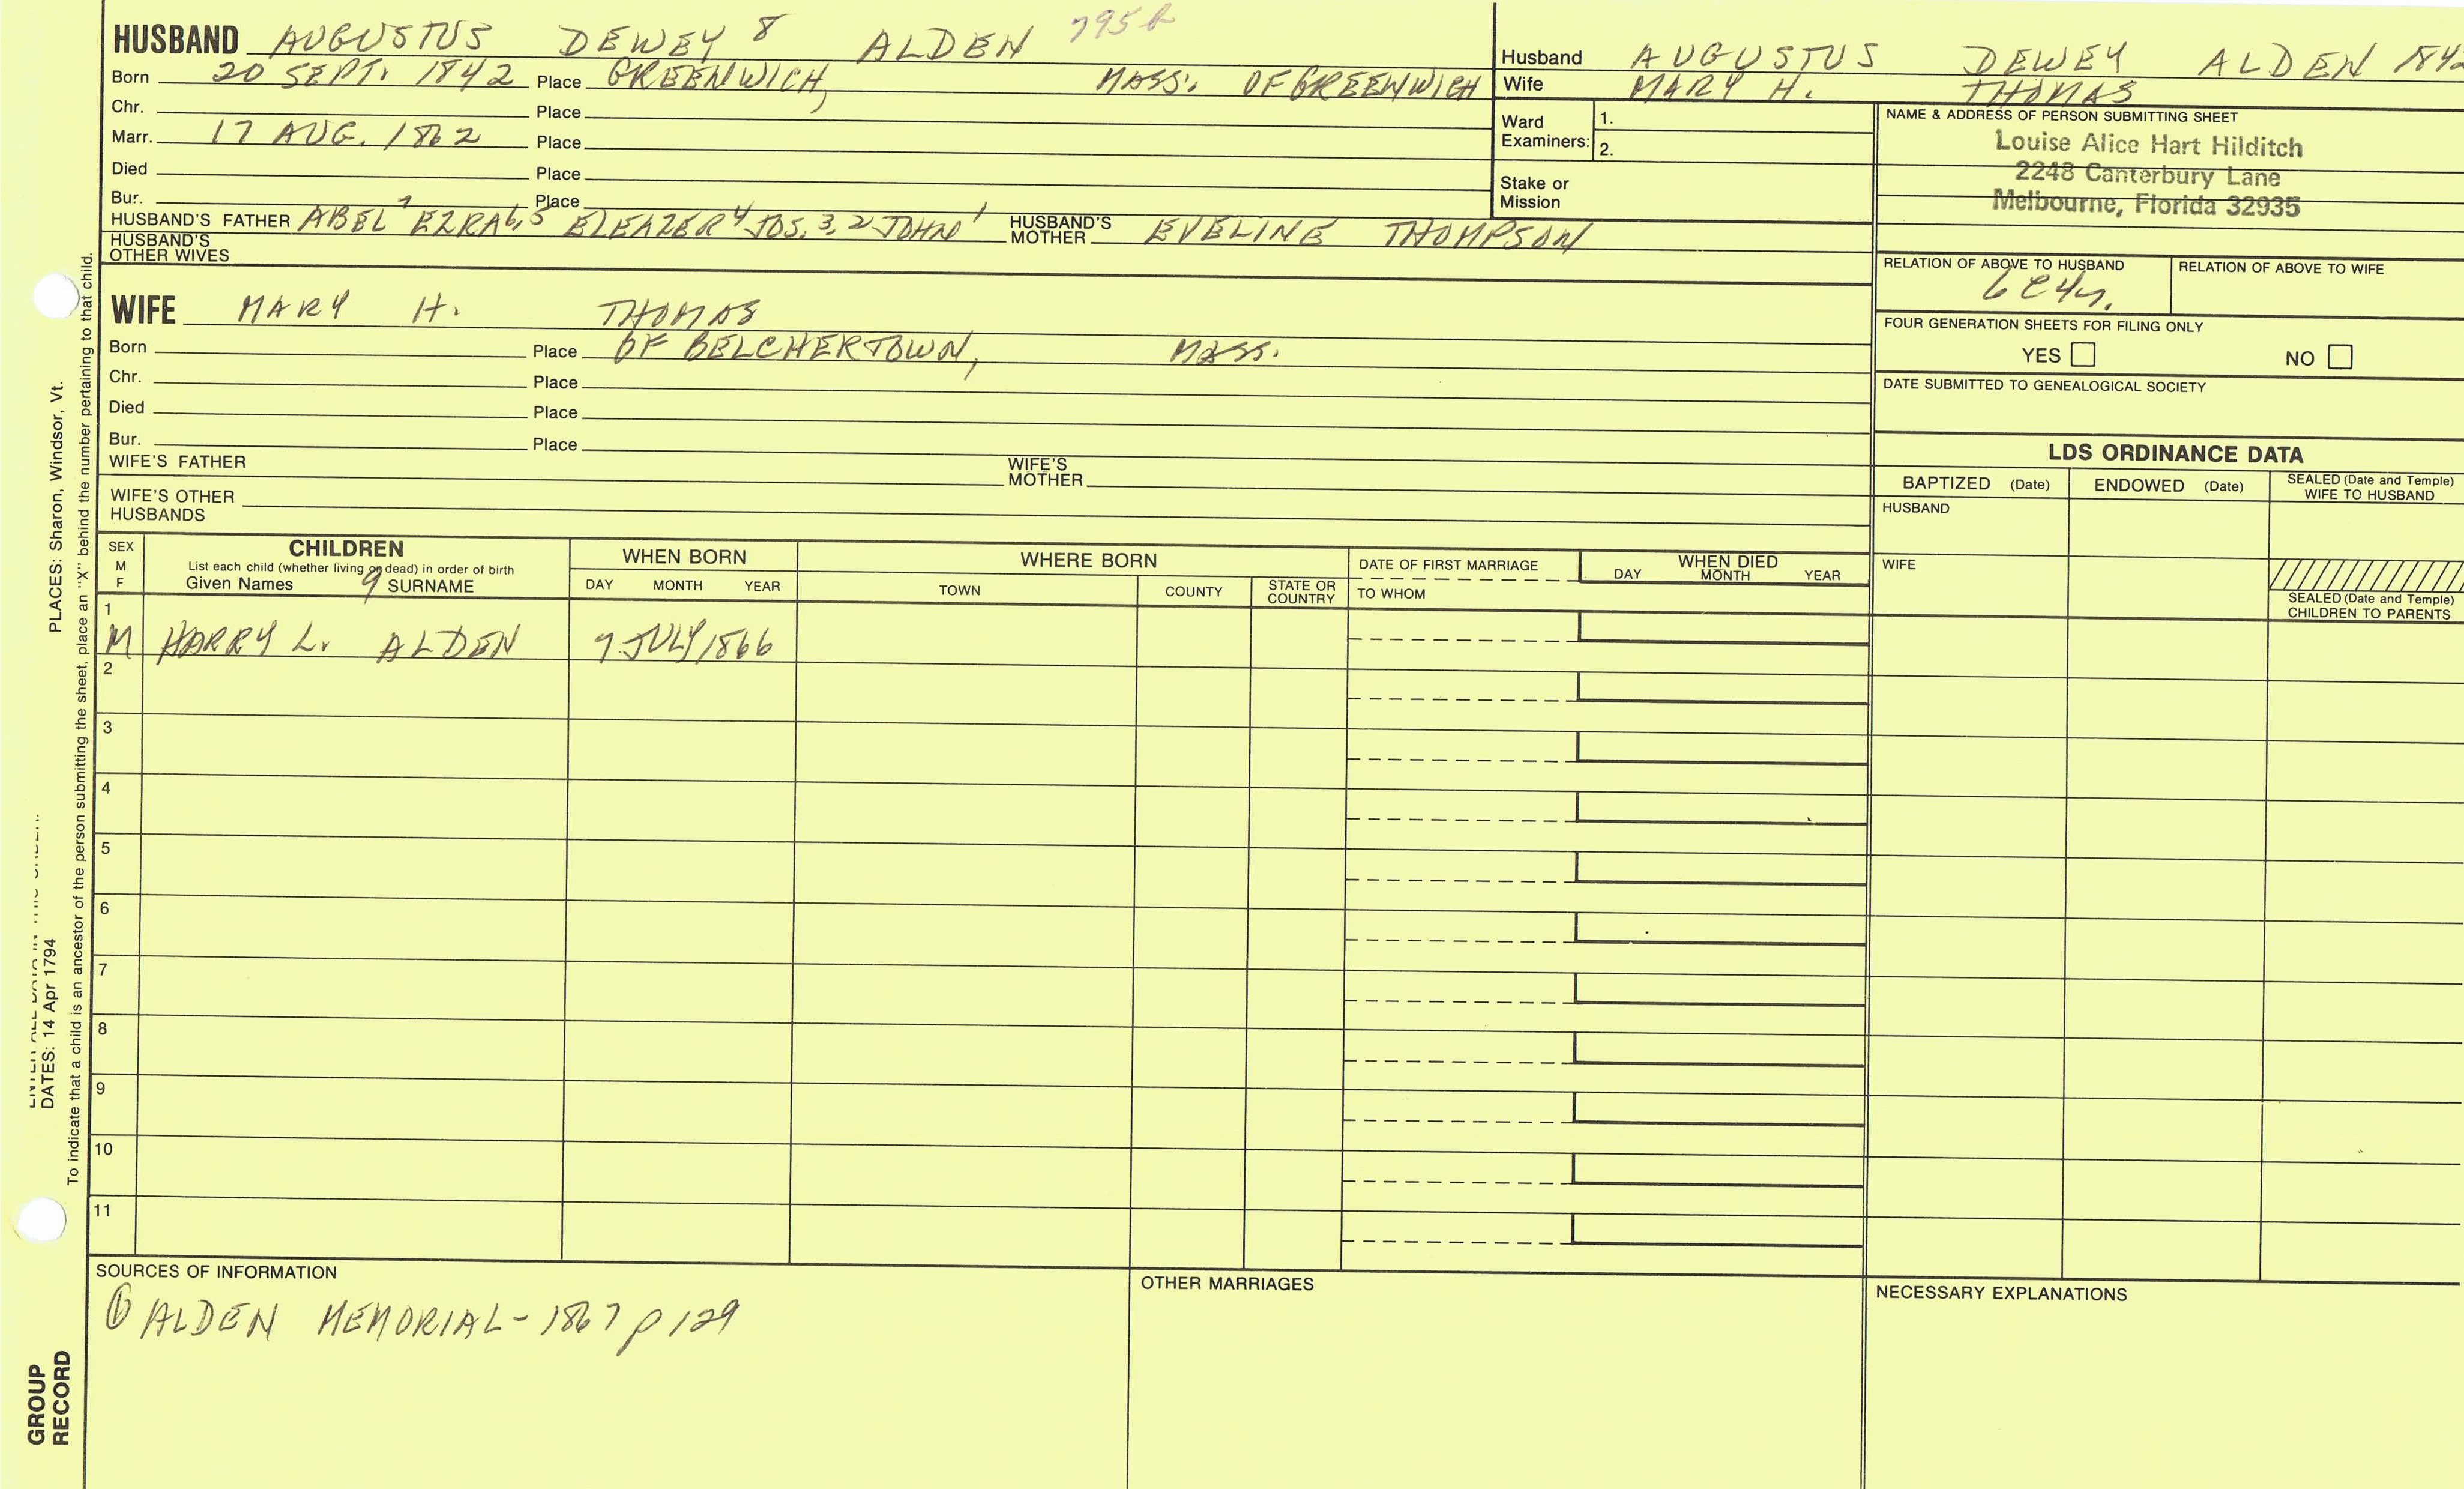 HUSBAND AUGUSTUS DEWEY 8 ALDEN 795
Born 20 SEPT. 1842 Place GREENWICH, MASS. OF GREENWICH
Chr. Place
Marr. 17 AUG. 1862 Place
Died Place
Bur. Place
HUSBAND'S FATHER ABEL 7 EZRA 6, 5 ELEAZER 4 JOS. 3, 2 JOHN 1 HUSBAND'S MOTHER EVELINE THOMPSON
HUSBAND'S OTHER WIVES
Husband AUGUSTUS DEWEY ALDEN 1842
Wife MARY H. THOMAS
Ward Examiners: 1.
2.
Stake or Mission
NAME & ADDRESS OF PERSON SUBMITTING SHEET
Louise Alice Hart Hilditch
2248 Canterbury Lane
Melbourne, Florida 32935
RELATION OF ABOVE TO HUSBAND RELATION OF ABOVE TO WIFE
FOUR GENERATION SHEETS FOR FILING ONLY
YES NO
DATE SUBMITTED TO GENEALOGICAL SOCIETY
WIFE MARY H. THOMAS
Born Place OF BELCHERTOWN, MASS.
Chr. Place
Died Place
Bur. Place
WIFE'S FATHER WIFE'S MOTHER
WIFE'S OTHER HUSBANDS
LDS ORDINANCE DATA
BAPTIZED (Date) ENDOWED (Date) SEALED (Date and Temple) WIFE TO HUSBAND
HUSBAND
WIFE
SEALED (Date and Temple) CHILDREN TO PARENTS
SEX M F
CHILDREN
List each child (whether living or dead) in order of birth
Given Names 9 SURNAME
WHEN BORN
DAY MONTH YEAR
WHERE BORN
TOWN COUNTY STATE OR COUNTRY
DATE OF FIRST MARRIAGE
TO WHOM
WHEN DIED
DAY MONTH YEAR
1
M HARRY L. ALDEN 7 JULY 1866
2
3
4
5
6
7
8
9
10
11
SOURCES OF INFORMATION
① ALDEN MEMORIAL - 1867 p 129
OTHER MARRIAGES
NECESSARY EXPLANATIONS
PLACES: Sharon, Windsor, Vt.
DATES: 14 Apr 1794
To indicate that a child is an ancestor of the person submitting the sheet, place an "X" behind the number pertaining to that child.
GROUP
RECORD